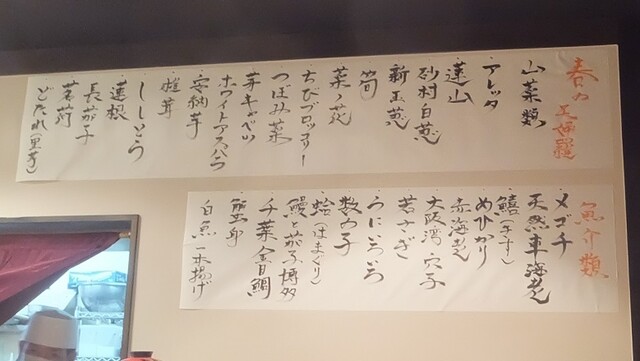 春の天婦羅
山菜類
アレッタ
蓮山
砂村白葱
新玉葱
筍
菜の花
ちびブロッコリー
つぼみ菜
芽キャベツ
ホワイトアスパラ
安納芋
椎茸
ししとう
蓮根
長茄子
茗荷
どたれ(里芋)
魚介類
メゴチ
天然車海老
鱚(きす)
めひかり
赤海老
大阪湾穴子
若さぎ
うにいろいろ
数の子
蛤(はまぐり)
鰻と茄子博多
千葉金目鯛
蟹
白魚一本揚げ